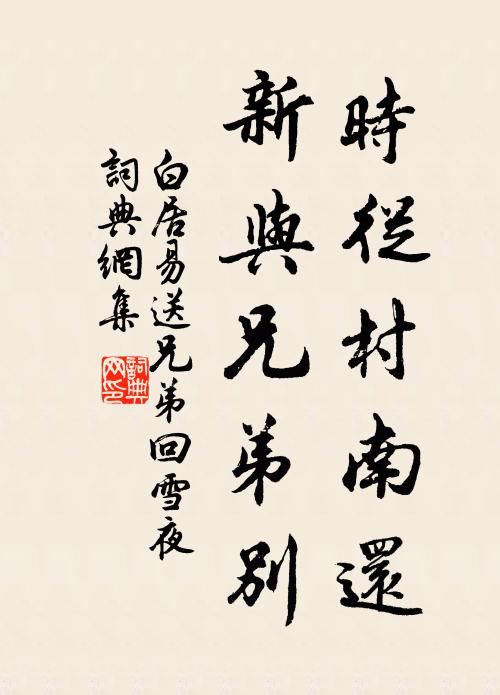 時從村南還
新與兄弟別
白居易送兄弟回雪夜
詞典網集
詞典网印